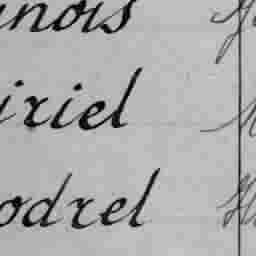 inois
iriel
odrel